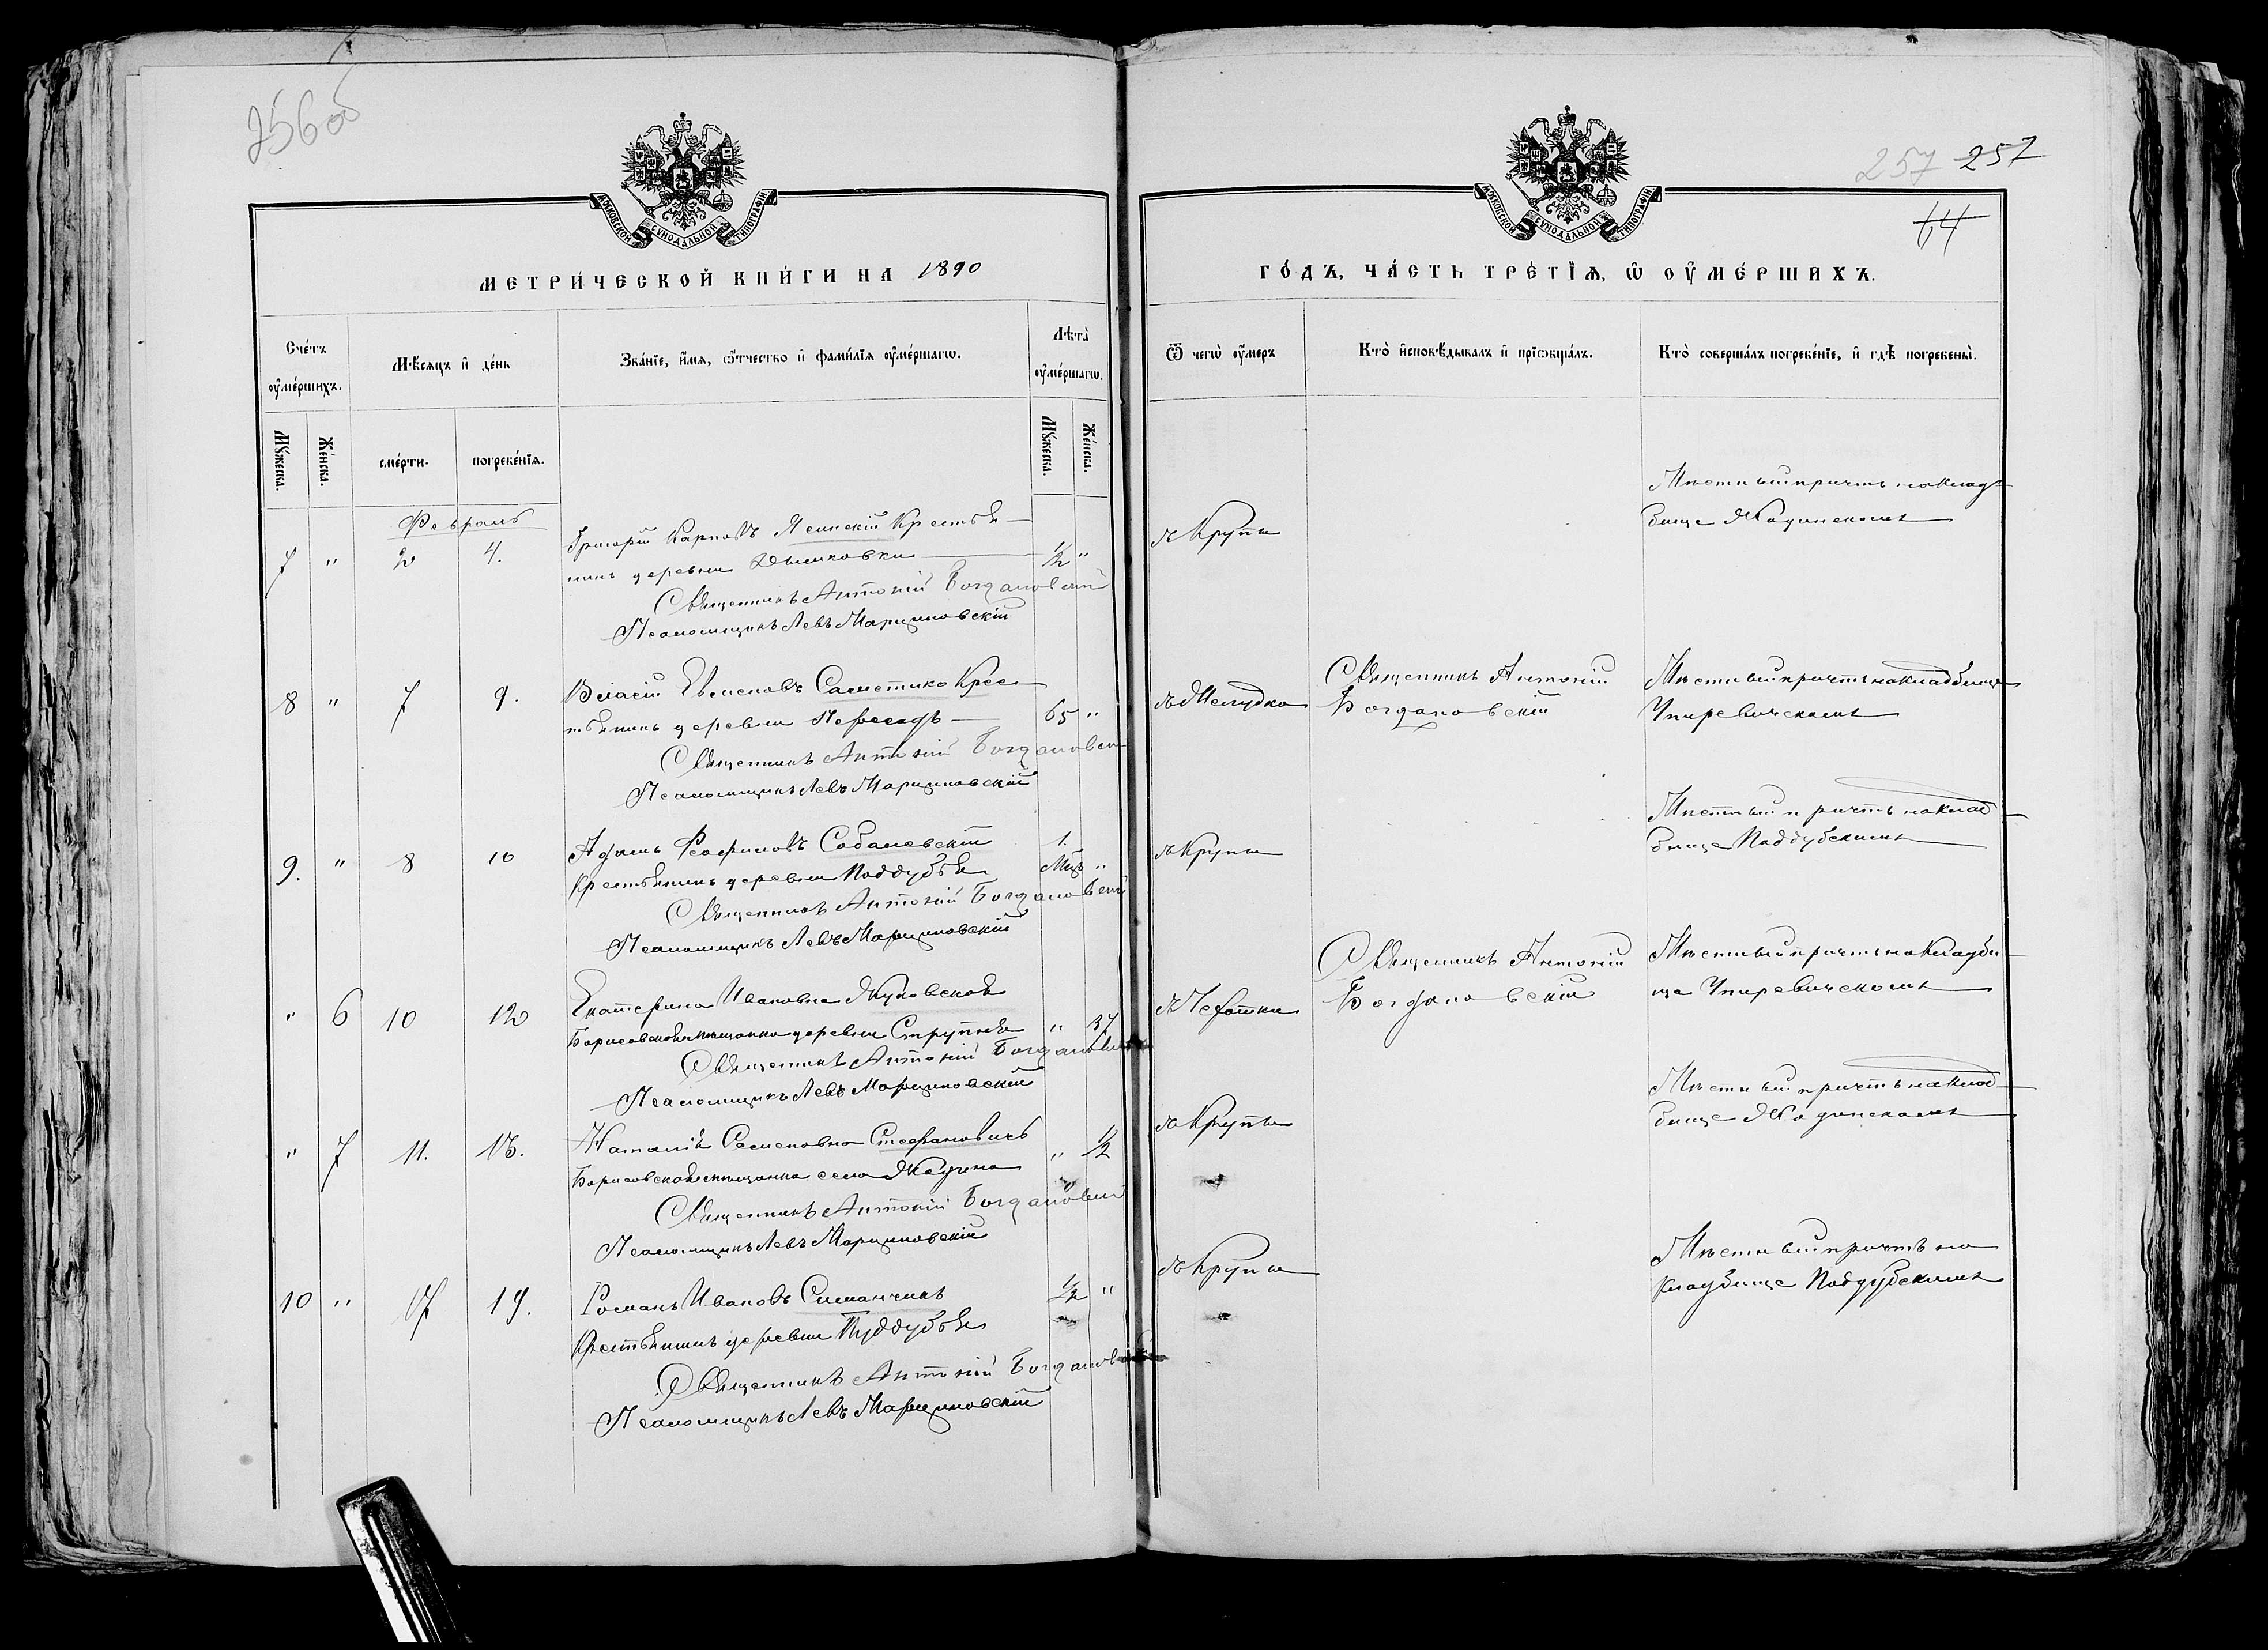 256об
257 257
64
МОСКОВСКОЙ СѴНОДАЛЬНОЙ ТИПОГРАФІИ
МОСКОВСКОЙ СѴНОДАЛЬНОЙ ТИПОГРАФІИ
МЕТРИ́ЧЕСКОЙ КНИ́ГИ НА 1890
ГО́ДЪ, ЧА́СТЬ ТРЕ́ТЇѦ, Ѡ҆ ОУ҆МЕ́РШИХЪ.
Сче́тъ оу҆ме́ршихъ.
Мꙋ́жеска.
Же́нска.
Мѣ́сѧцъ и҆ де́нь
сме́рти.
погребе́нїѧ.
Зва́нїе, и҆́мѧ, ѻ҆́тчество и҆ фами́лїѧ оу҆ме́ршагѡ.
Лѣта̀ оу҆ме́ршагѡ.
Мꙋ́жеска.
Же́нска.
Ѿ чегѡ̀ оу҆́меръ
Кто̀ и҆сповѣ́дывалъ и҆ прїѡбща́лъ.
Кто̀ соверша́лъ погребе́нїе, и҆ гдѣ̀ погребены̀.
Февраль
7 " 2 4.
Григорій Карповъ Ясинскій Крестья-
нинъ деревни Дымковки ½ "
Священникъ Антоній Богдановскій
Псаломщикъ Левъ Марциновскій
Крупы
Мѣстный причтъ на Клад-
бище Жодинскомъ
8 " 7 9.
Власій Евменовъ Саметико Крес-
тьянинъ деревни Пересады 65 "
Священникъ Антоній Богдановскій
Псаломщикъ Левъ Марциновскій
Желудка
Священникъ Антоній
Богдановскій
Мѣстный причтъ на кладбище
Упиревичскомъ
9. " 8 10
Адамъ Феофиловъ Сабалевскій 1.
Крестьянинъ деревни Поддубья Мѣц "
Священникъ Антоній Богдановскій
Псаломщикъ Левъ Марциновскій
Крупы
Мѣстный причтъ на клад-
бище Поддубскомъ
" 6 10 12
Екатерина Ивановна Жуковская
Борисовская мѣщанка деревни Струпня " 37
Священникъ Антоній Богдановскій
Псаломщикъ Левъ Марциновскій
Чахотки
Священникъ Антоній
Богдановскій
Мѣстный причтъ на Кладби-
ще Упиревичскомъ
" 7 11. 13.
Наталія Семеновна Стефановичъ " ½
Борисовская мѣщанка села Жодина
Священникъ Антоній Богдановскій
Псаломщикъ Левъ Марциновскій
Крупы
Мѣстный причтъ на клад-
бище Жодинскомъ
10 " 17 19.
Романъ Ивановъ Симанчикъ ½ "
Крестьянинъ деревни Пуддубья
Священникъ Антоній Богдановскій
Псаломщикъ Левъ Марциновскій
Крупы
Мѣстный причтъ на
кладбище Поддубскомъ